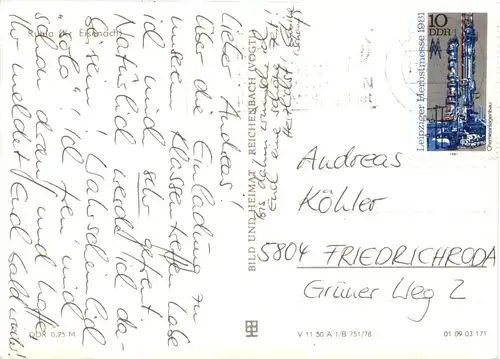 Ruhla (Kr. Eisenach)
Lieber Andreas!
Über die Einladung zu
unserem Klassentreffen habe
ich mich sehr gefreut.
Natürlich werde ich da-
bei sein! Wahrscheinlich
"solo"! Ich freu' mich
schon drauf und hoffe
Ihr meldet Euch bald wieder!
Bis dahin wünsche ich
Euch eine schöne Zeit!
Herzlichst!
BILD UND HEIMAT REICHENBACH (VOGTL)
10
DDR
Leipziger Herbstmesse 1981
Chemieanlagenbau
1981
Andreas
Köhler
5804 FRIEDRICHRODA
Grüner Weg 2
DDR 0,25 M
V 11 50 A 1/B 751/78
01 09 03 171